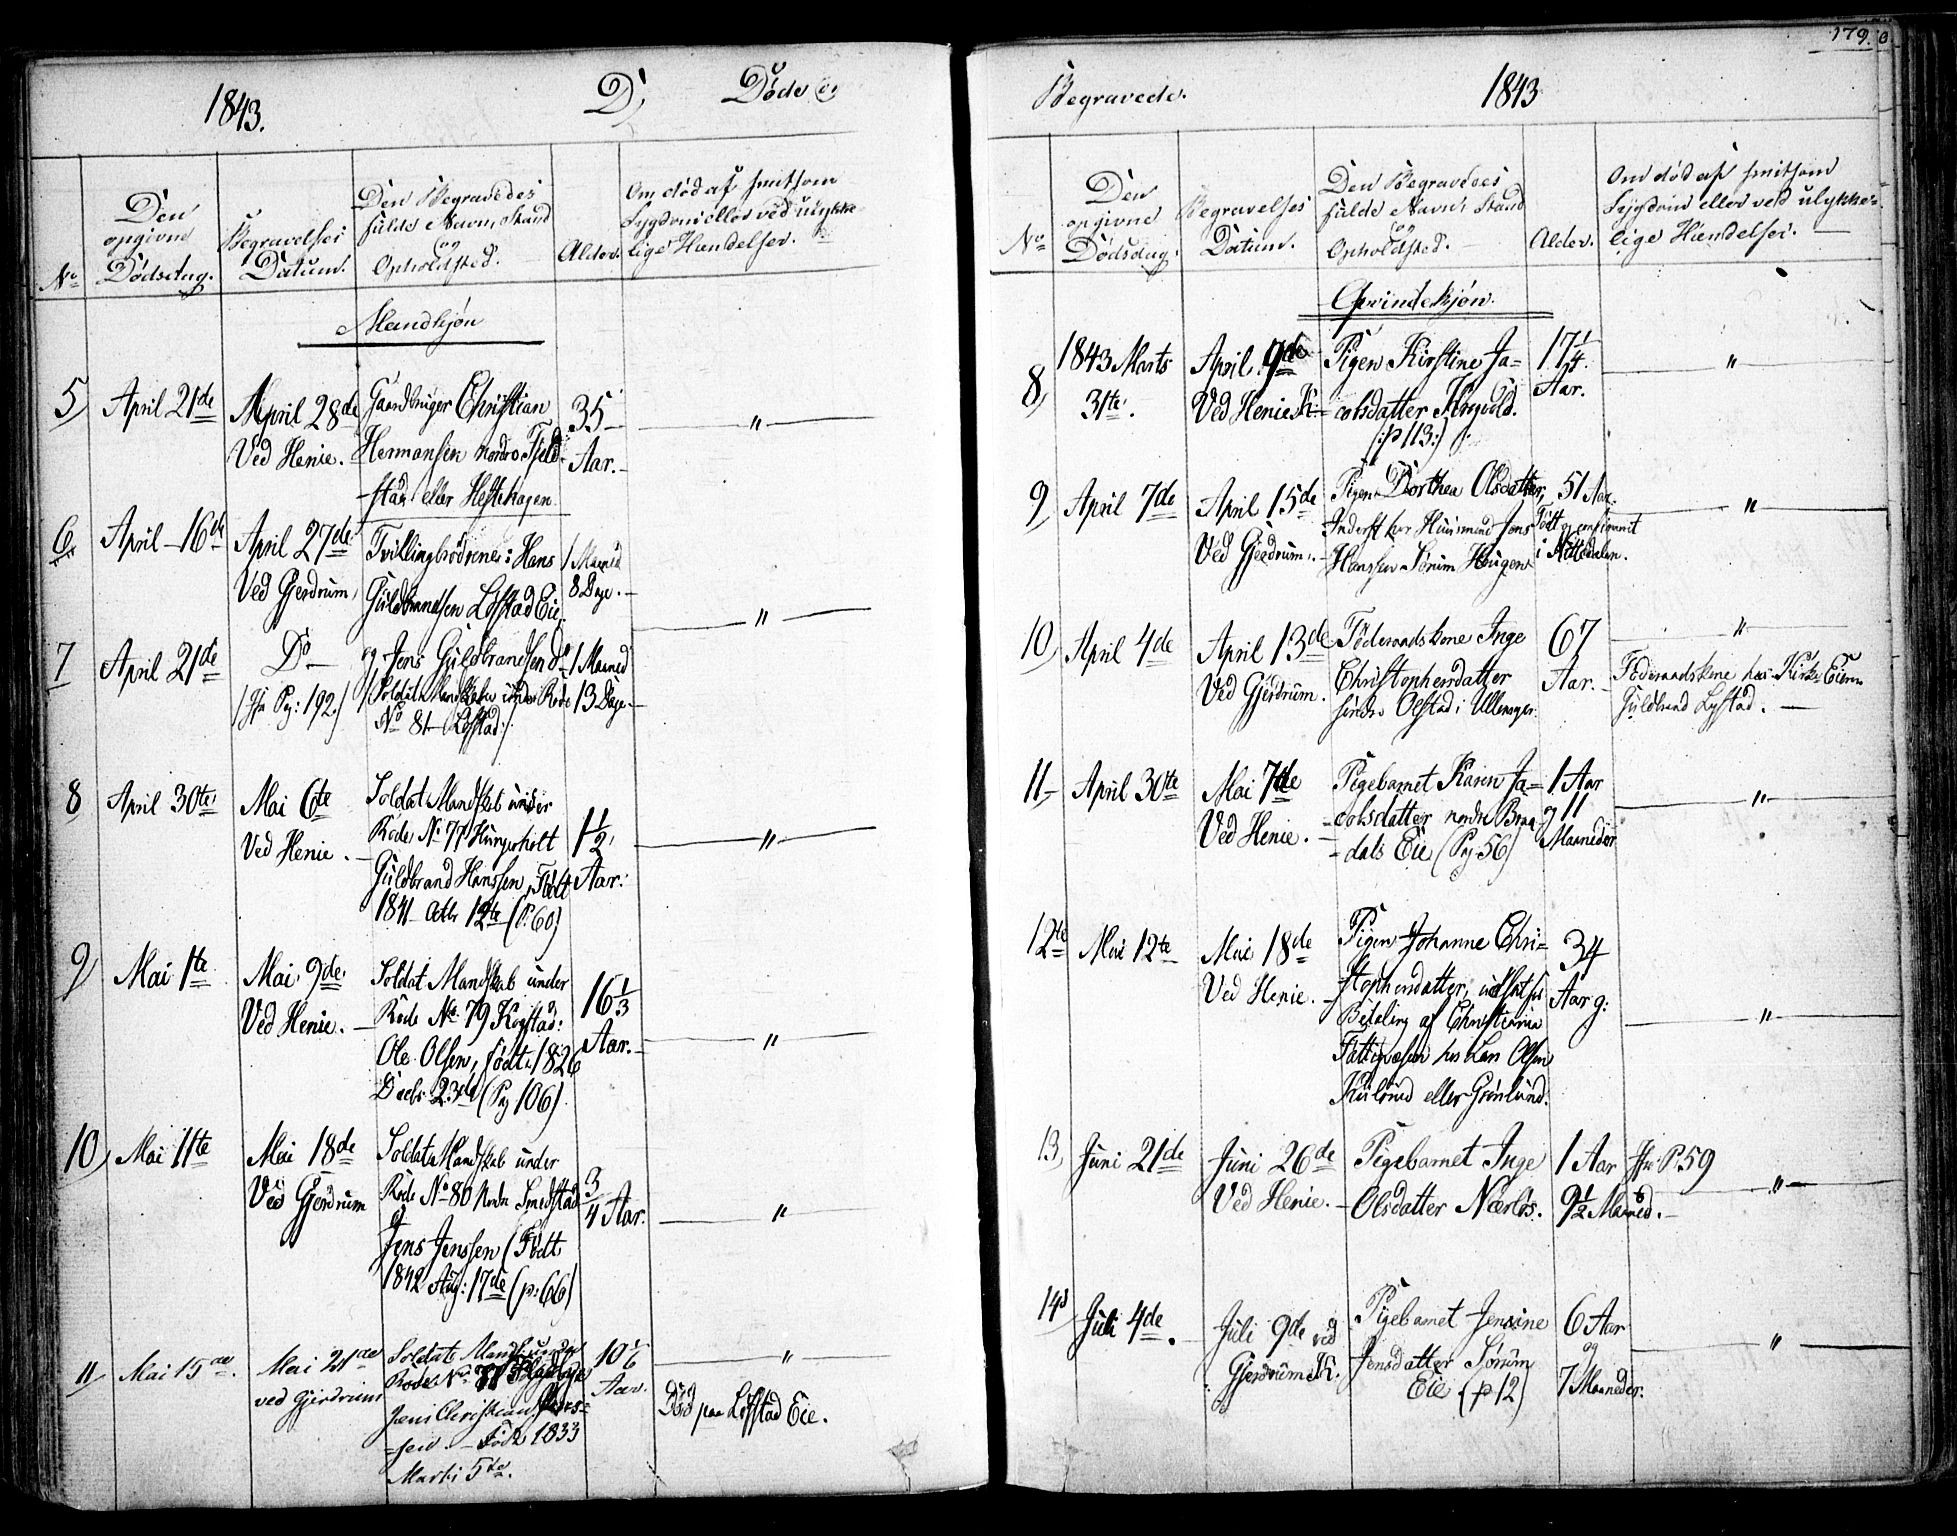 1843.
D, Døde og
Den
opgivne
Dødsdag.
Begravelses
Datum.
Den Begravedes
fulde Navn, Stand
og
Opholdsted.
Alder.
Om død af smitsom
Sygdom eller ved ulykke-
lige Hændelser.
No
Mandkjøn
5, April 21de
April 28de
Ved Henie.
Gaardbruger Christian
Hermansen nordre Fjeld-
stad eller Hestehagen
35
Aar.
"
6, April 16de
April 27de
Ved Gjerdrum,
Tvillingbrødrene: Hans
Guldbrandsen Løfstad Eie,
1 Maaned
8 Dage.
"
7 April 21de
Do
/Jfr Pag: 192./
og Jens Guldbrandsen do
/Soldat Mandskaber under Rode
No 81 Løfstad/.
1 Maaned
13 Dage.
8 April 30te
Mai 6te
Ved Henie.
Soldat Mandskab under
Rode No 77 Hungerholt
Guldbrand Hanssen, Født
1841 Octb 12te (P. 60)
1 1/2
Aar.
"
9, Mai 1te
Mai 9de
Ved Henie.
Soldat Mandskab under
Rode No 79 Kogstad:
Ole Olsen, født 1826
Decbr 23de (Pag 106)
16 1/3
Aar.
"
10, Mai 11te
Mai 18de
Ved Gjerdrum
Soldat Mandskab under
Rode No 80 Nordre Smedstad
Jens Jenssen (Født
1842 Aug: 17de (p. 66)
3/4 Aar.
"
11, Mai 15de.
Mai 21de
ved Gjerdrum
Soldat Mandskab under
Rode No
Jens Christian
sen. - Født 1833
Marts 5te.
10 1/6
Aar.
"
Død paa Løfstad Eie.
179.
Begravede.
1843
No
Den
opgivne
Dødsdag.
Begravelses
Datum.
Den Begravedes
fulde Navn, Stand
og
Opholdsted.
Alder.
Om død af smitsom
Sygdom eller ved ulykke-
lige Hændelser.
Qvindekjøn.
8, 1843 Marts
31te.
April 9de
Ved Henie K.
Pigen Kirstine Ja-
cobsdatter
(:p 113:)
17 1/4
Aar.
"
9, April 7de
April 15de
Ved Gjerdrum.
Pigen Dorthea Olsdatter,
Inderst hos Huusmand Jens
Hanssen Sørum Haugen
51 Aar.
Født og confirmeret
i Nittedalen.
"
10, April 4de
April 13de
Ved Gjerdrum.
Føderaadskone Inge
Christophersdatter
søndre Olstad i Ullensager.
67
Aar.
"
Føderaadskone hos Kirke Eieren
Guldbrand Lystad.
11 April 30te
Mai 7de
Ved Henie.
Pigebarnet Karen Ja-
cobsdatter nordre Braa-
dals Eie (Pag 56)
1 Aar
og 11
Maaneder
"
12te Mai 12te
Mai 18de
Ved Henie.
Pigen Johanne Chri-
stophersdatter, udsat for
Betaling af Christiania
Fattigvæsen hos Lars Olsen
Kulsrud eller Grønlund.
34
Aar g:
"
13, Juni 21de
Juni 26de
Ved Henie.
Pigebarnet Inge
Olsdatter Nærløs.
1 Aar
9 1/2 Maaned.
Jfr. P. 59
"
14, Juli 4de.
Juli 9de ved
Gjerdrums K.
Pigebarnet Jensine
Jensdatter Sørum
Eie (p 12)
6 Aar
og
7 Maaneder.
"